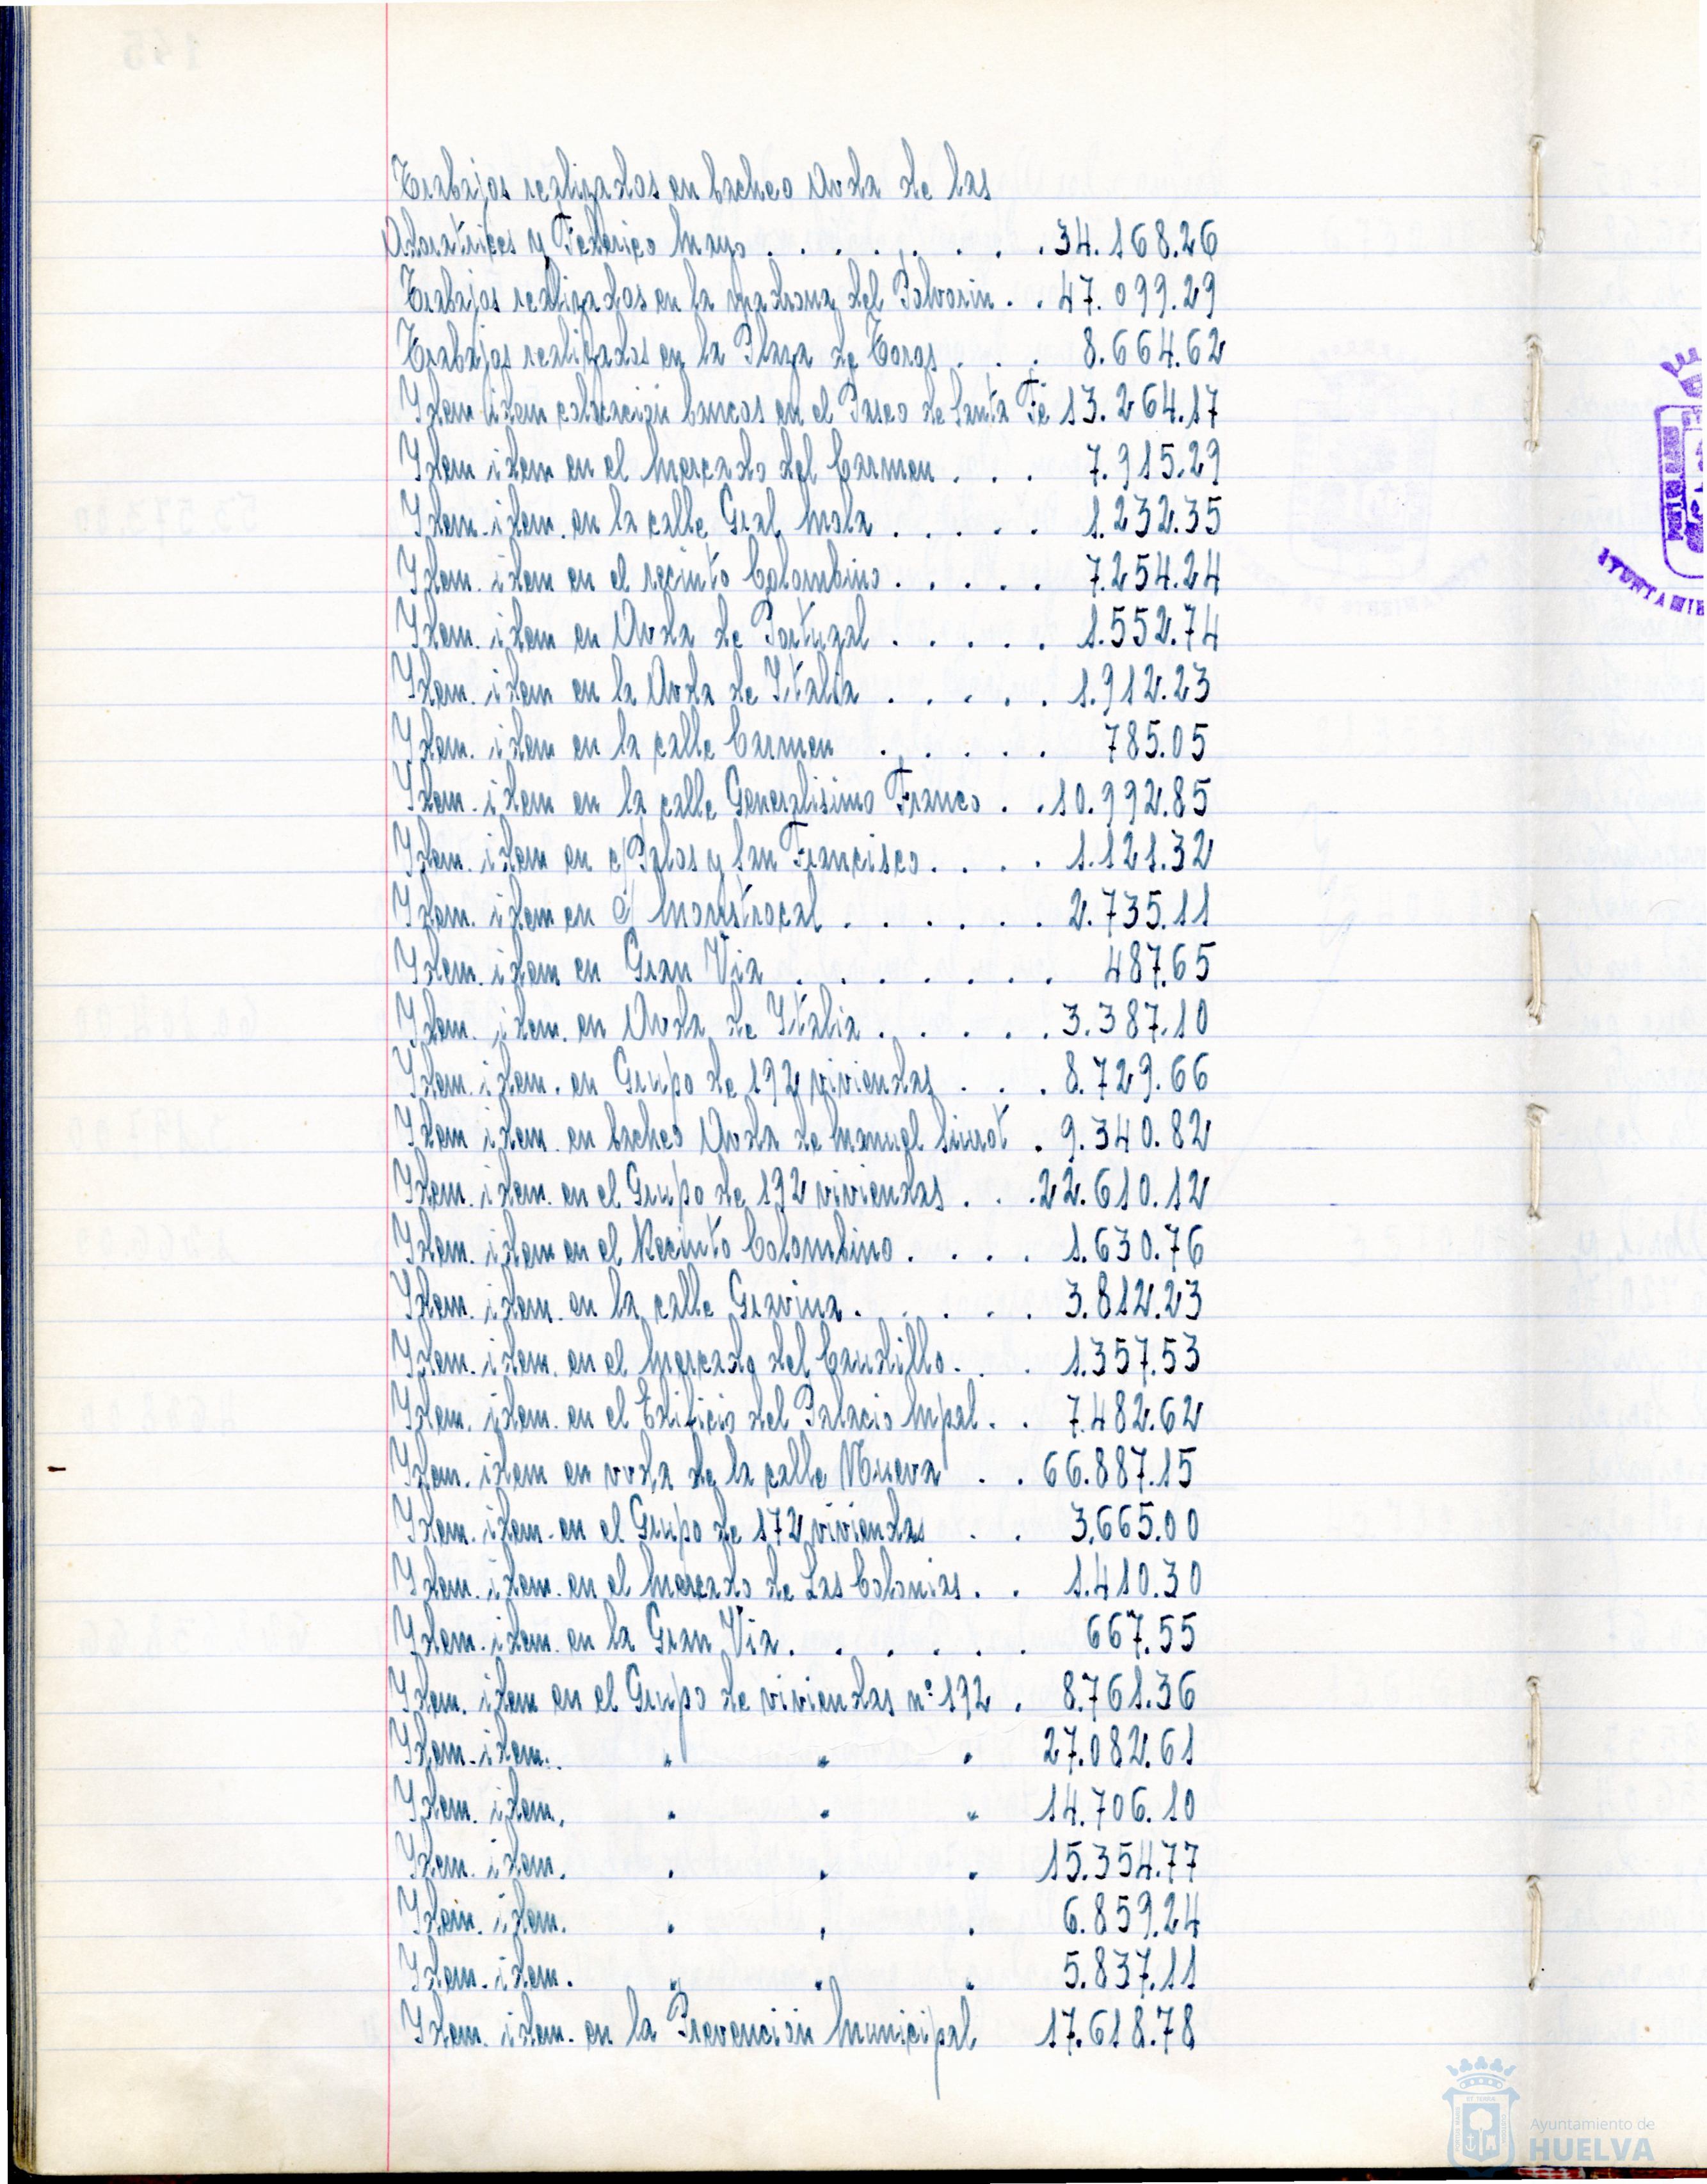 Trabajos realizados en bacheo Avda de las
Adoratrices y Federico Mayo . . . . . . . . 34.168.26
Trabajos realizados en la madrona del Polvorin . . 47.099.29
Trabajos realizados en la Plaza de Toros . . . 8.664.62
Idem idem colocación bancos en el Paseo de Santa Fé 13.264.17
Idem idem en el Mercado del Carmen . . . 7.915.29
Idem. idem. en la calle Gral Mola . . . . . 1.232.35
Idem. idem en el recinto Colombino . . . . . 7.254.24
Idem. idem en Avda de Portugal . . . . . 1.552.74
Idem. idem en la Avda de Italia . . . . . 1.912.23
Idem. idem en la calle Carmen . . . . . 785.05
Idem. idem en la calle Generalisimo Franco . . 10.992.85
Idem. idem en c/ Palos y San Francisco . . . . 1.121.32
Idem. idem en c/ . . . . . . 2.735.11
Idem. idem en Gran Via . . . . . . . 487.65
Idem. idem. en Avda de Italia . . . . . 3.387.10
Idem. idem. en Grupo de 192 viviendas . . . 8.729.66
Idem idem. en bacheo Avda de Manuel Siurot . 9.340.82
Idem. idem. en el Grupo de 192 viviendas . . . 22.610.12
Idem. idem en el Recinto Colombino . . . . 1.630.76
Idem. idem. en la calle Gravina . . . . . 3.812.23
Idem. idem. en el Mercado del Caudillo . . . 1.357.53
Idem. idem. en el Edificio del Palacio Mpal . . 7.482.62
Idem. idem en vvda de la calle Nueva . . 66.887.15
Idem. idem. en el Grupo de 172 viviendas . . 3.665.00
Idem. idem. en el Mercado de Las Colonias . . 1.410.30
Idem. idem. en la Gran Via . . . . . . 667.55
Idem. idem en el Grupo de viviendas nº 192 . 8.761.36
Idem. idem. " " " 27.082.61
Idem. idem. " " " 14.706.10
Idem. idem. " " " 15.354.77
Idem. idem. " " " 6.859.24
Idem. idem. " " " 5.837.11
Idem. idem. en la Prevención Municipal 17.618.78
Ayuntamiento de
HUELVA